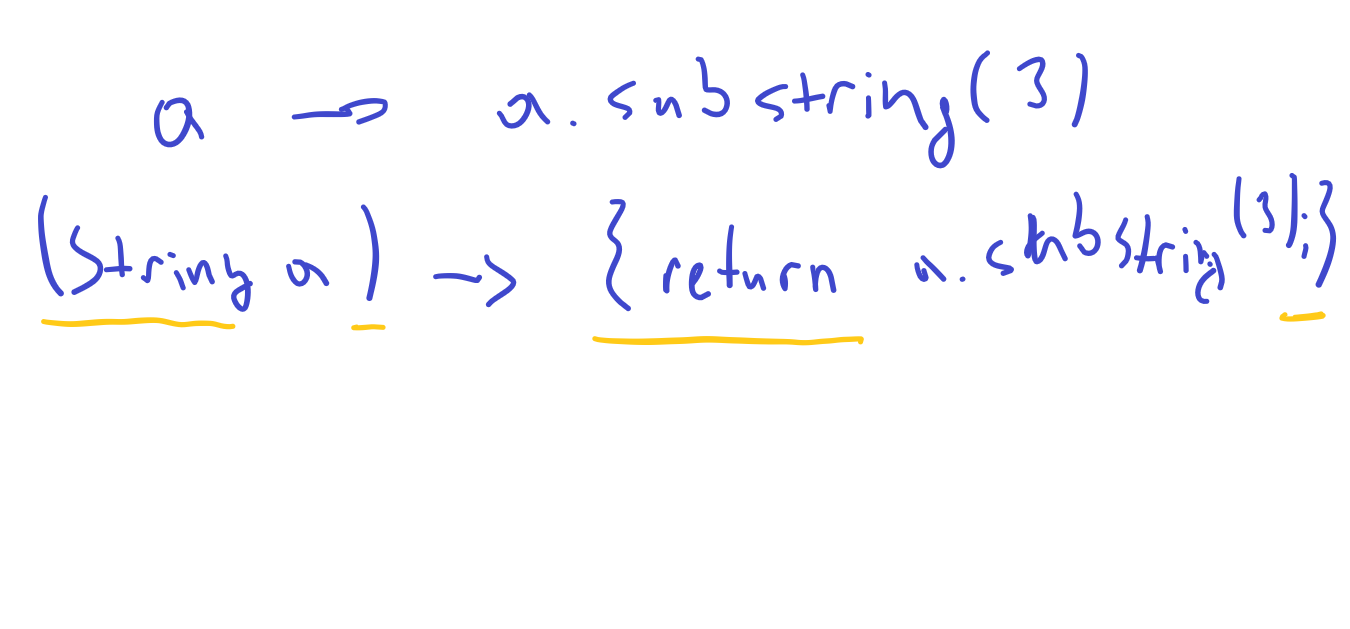 a -> a.substring(3)
(String a) -> {return a.substring(3);}